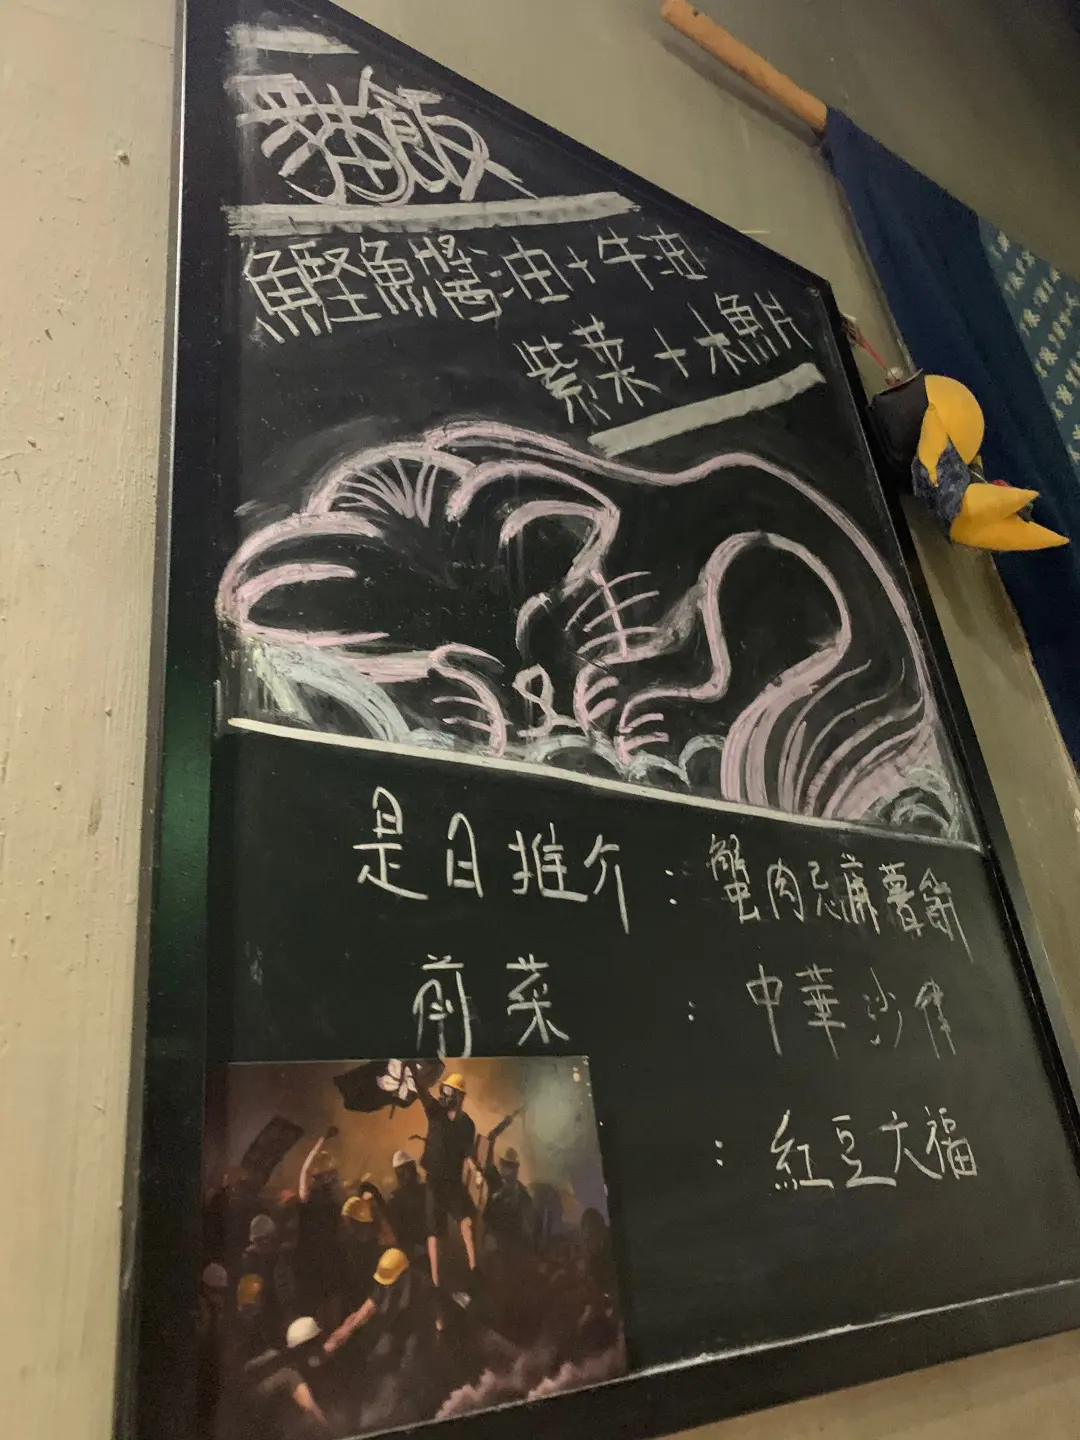 貓飯
鰹魚醬油+牛油
紫菜+木魚片
是日推介：蟹肉忌廉薯餅
前菜：中華沙律
：紅豆大福